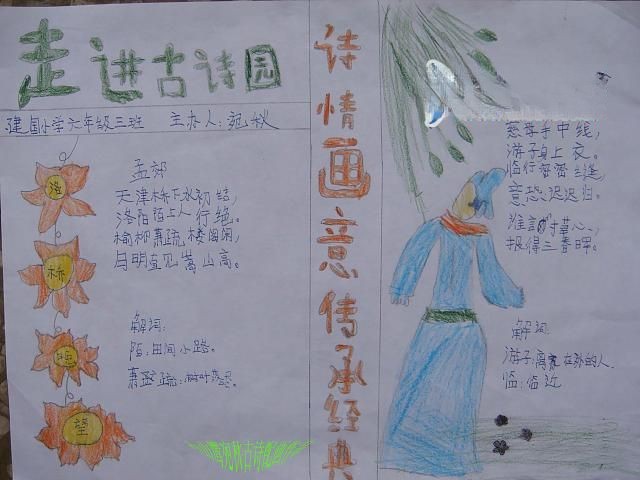 走进古诗园
建国小学六年级三班 主办人:宛秋
洛
桥
晚
望
孟郊
天津桥下水初结,
洛阳陌上人行绝。
榆柳萧疏楼阁闲,
月明直见嵩山高。
解词:
陌:田间小路。
萧疏:树叶落尽。
诗情画意传承经典
慈母手中线,
游子身上衣。
临行密密缝,
意恐迟迟归。
谁言寸草心,
报得三春晖。
解词:
游子:离家在外的人.
临:临近